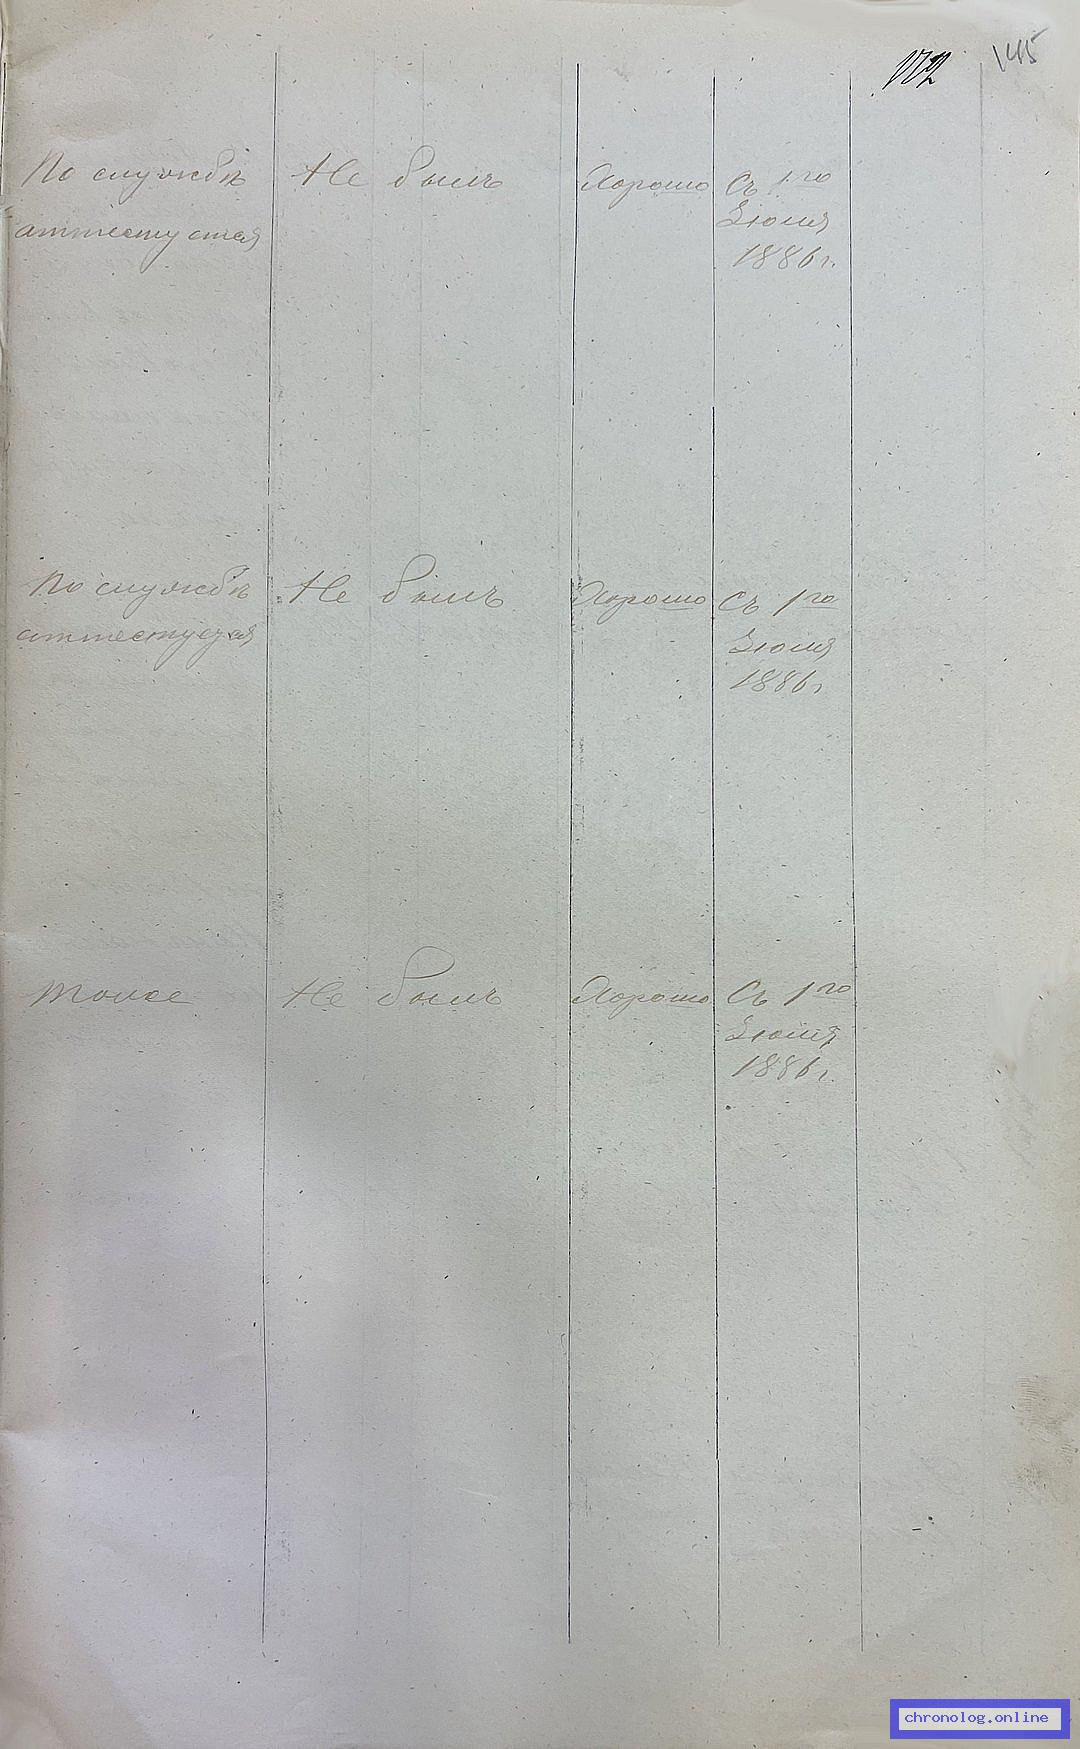 145
172
По службѣ Не былъ Хорошо Съ 1го
аттестуется Іюля
1886 г.
По службѣ Не былъ Хорошо Съ 1го
аттестуется Іюля
1886 г.
тоже Не былъ Хорошо Съ 1го
Іюля
1886 г.
chronolog.online